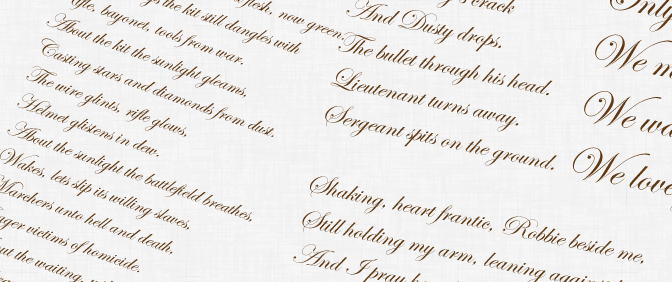 the kit still dangles with flesh, now green.
rifle, bayonet, tools from war.
About the kit the sunlight gleams,
Casting stars and diamonds from dust.
The wire glints, rifle glows,
Helmet glistens in dew.
About the sunlight the battlefield breathes,
Wakes, lets slip its willing slaves,
Marchers unto hell and death,
victims of homicide.
the waiting,
crack
And Dusty drops,
The bullet through his head.
Lieutenant turns away.
Sergeant spits on the ground.
Shaking, heart frantic, Robbie beside me,
Still holding my arm, leaning
And I pray
Only
We
We
We love